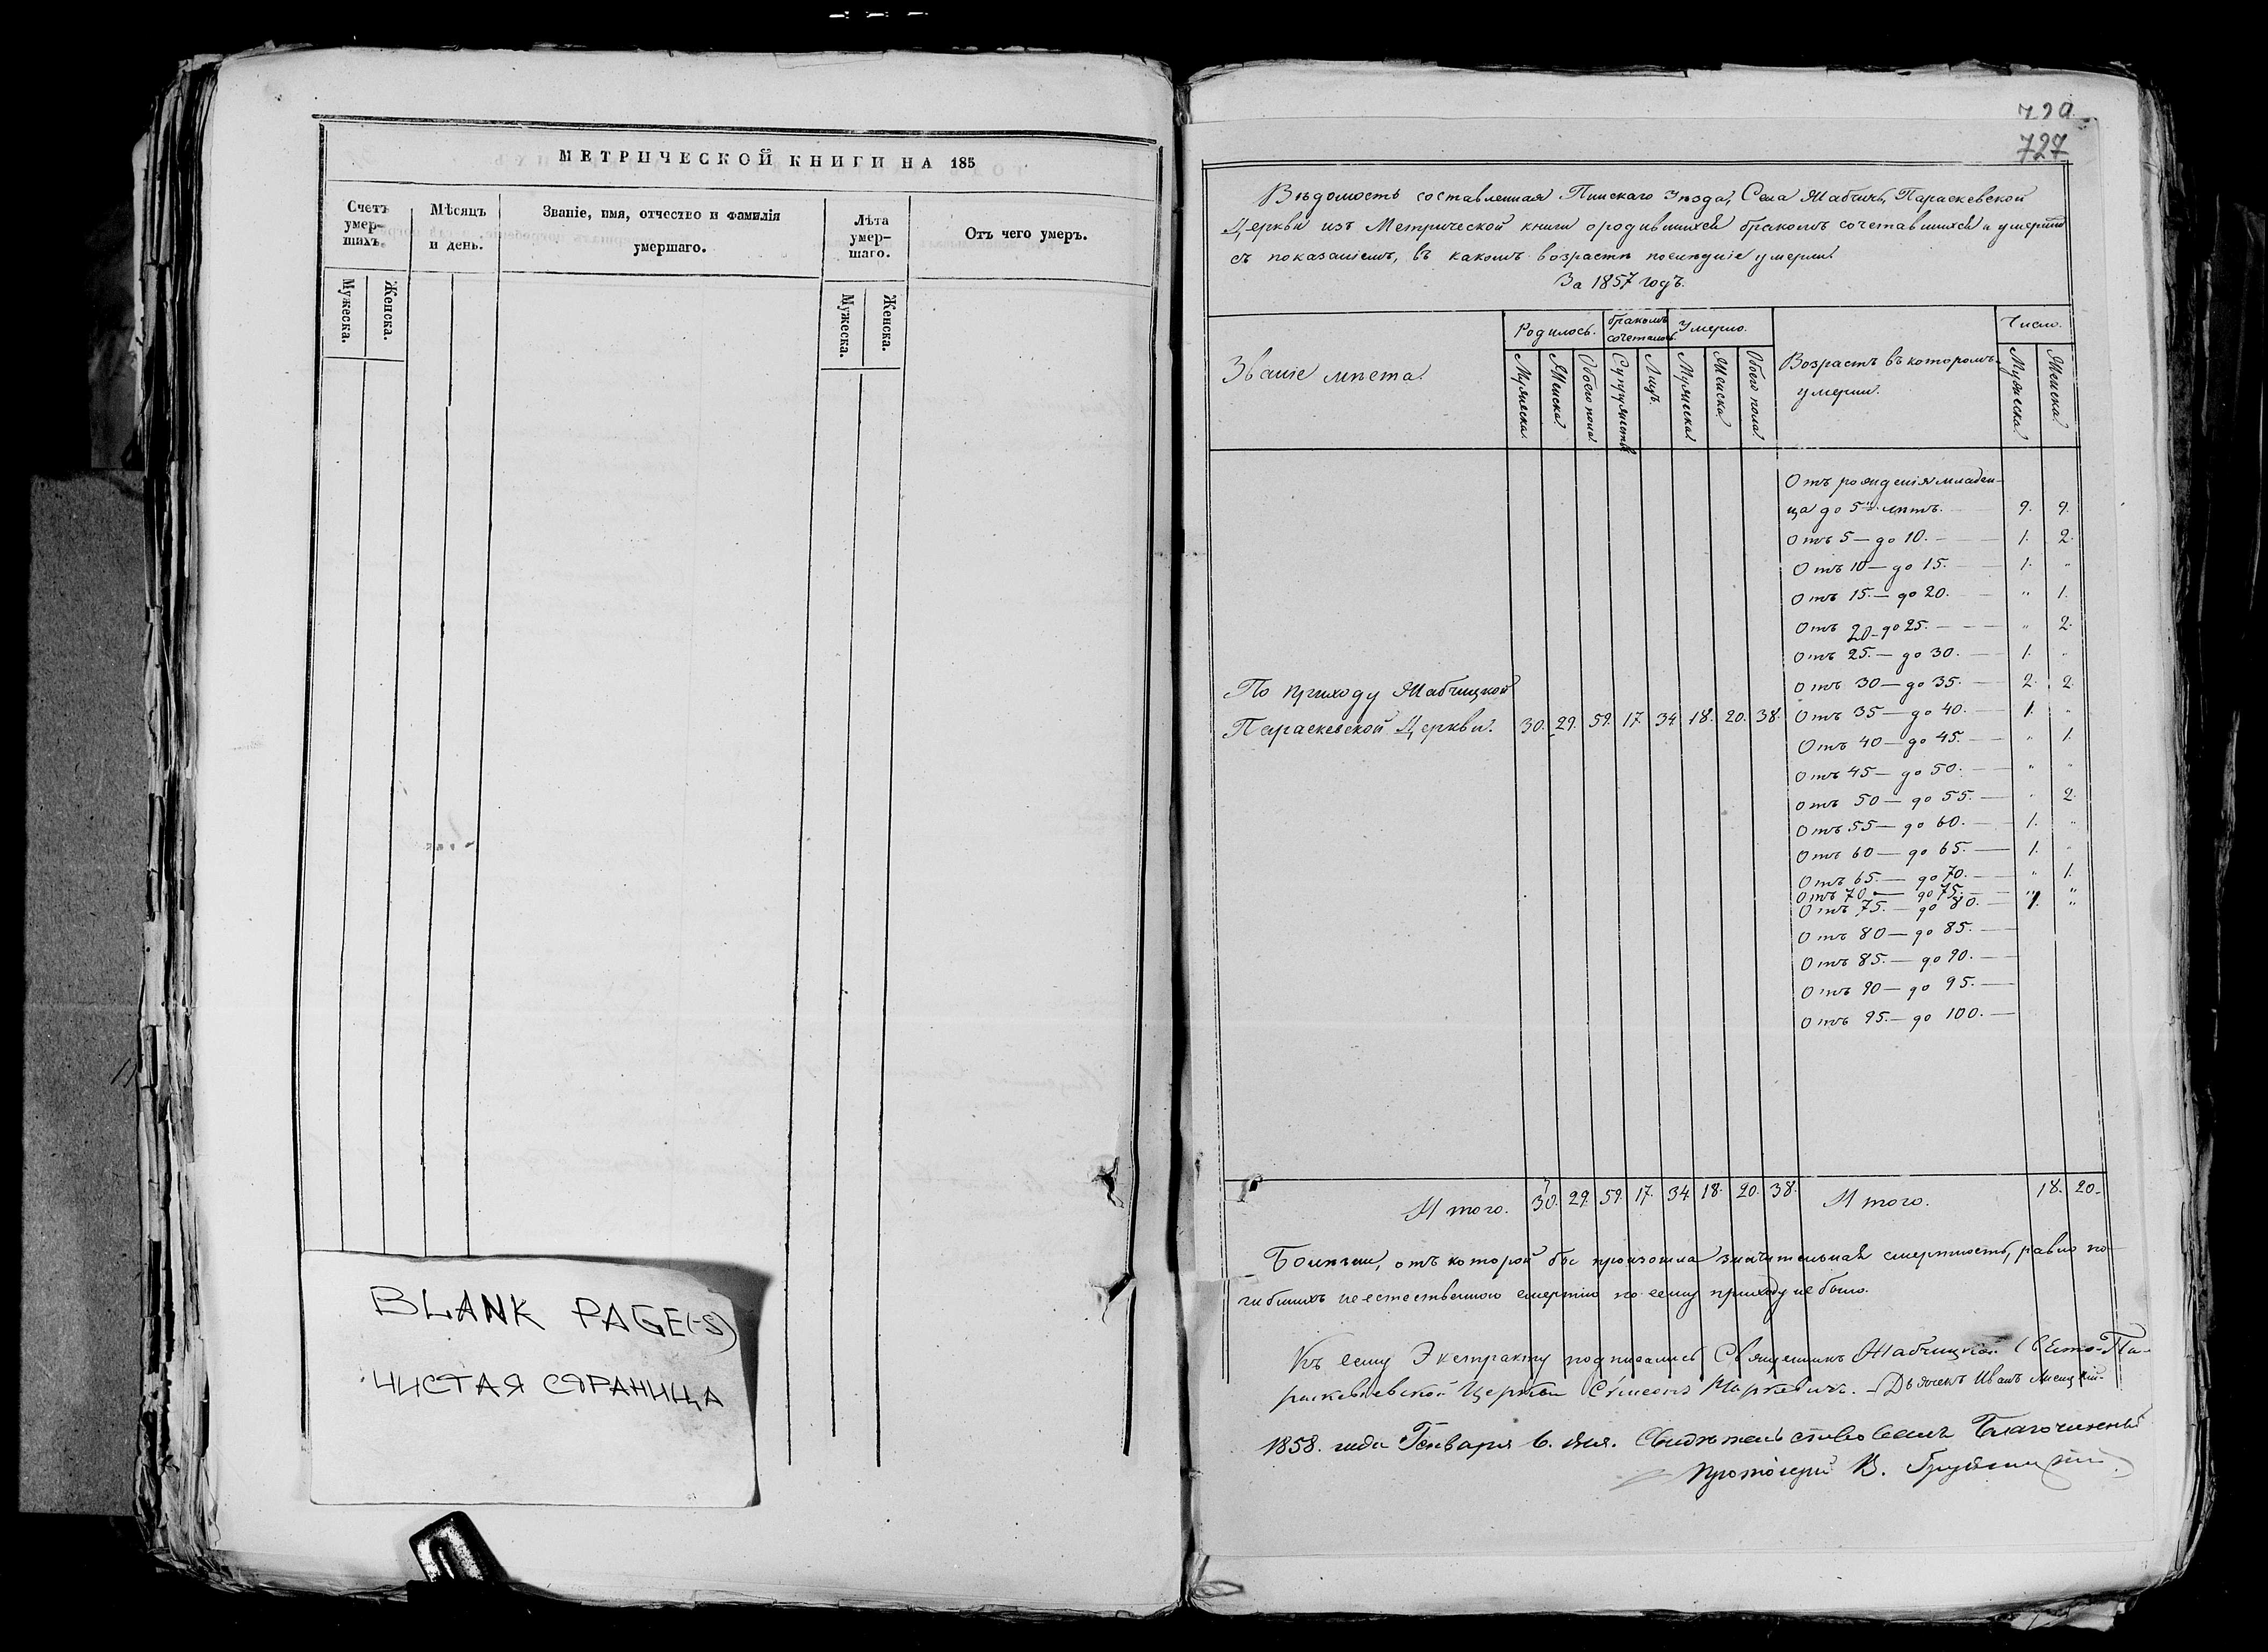 МЕТРИЧЕСКОЙ КНИГИ НА 185
Счетъ умер-шихъ.
Мѣсяцъ и день.
Званіе, имя, отчество и фамилія умершаго.
Лѣта умер-шаго.
Отъ чего умеръ.
Мужеска.
Женска.
Мужеска.
Женска.
BLANK PAGE(-S)
ЧИСТАЯ СТРАНИЦА
729
727
Вѣдомость составленная Пинскаго Уѣзда, Села Жабчичь, Параскевской
Церкви изъ Метрической книги о родившихся бракомъ сочетавшихся и умершихъ
съ показаніемъ, въ какомъ возрастѣ послѣдніе умерли
За 1857 годъ.
Званіе мѣста.
Родилось.
бракомъ сочеталось
Умерло.
Возрастъ въ которомъ умерли.
Число.
Мужеска.
Женска.
Обоего пола
Супружествъ
Лицъ.
Мужеска
Женска
Обоего пола
Мужеска
Женска
Отъ рожденія младен-
ца до 5и лѣтъ. 9. 9.
Отъ 5 — до 10. 1. 2.
Отъ 10 — до 15. 1. "
Отъ 15. — до 20. " 1.
Отъ 20 — до 25. " 2.
Отъ 25. — до 30. 1. "
Отъ 30 — до 35. 2. 2.
По приходу Жабчицкой
Параскевской Церкви. 30. 29. 59. 17. 34. 18. 20. 38. Отъ 35 — до 40. 1. "
Отъ 40 — до 45. " 1.
Отъ 45 — до 50. " "
Отъ 50 — до 55. " 2.
Отъ 55 — до 60. 1. "
Отъ 60 — до 65. 1. "
Отъ 65. — до 70. " 1.
Отъ 70 — до 75. " "
Отъ 75. — до 80. 1. "
Отъ 80 — до 85.
Отъ 85. — до 90.
Отъ 90 — до 95.
Отъ 95. — до 100.
Итого. 30. 29. 59. 17. 34. 18. 20. 38. Итого. 18. 20.
Болѣзни, отъ которой бы произошла значительная смертность, равно по-
гибшихъ неестественною смертію по сему приходу не было.
Къ сему Экстракту подписались Священникъ Жабчицкой Свято-Па-
раскевіевской Церкви Сімеонъ Маркевичъ. Дьячекъ Иванъ
1858. года Генваря 6. дня. Свидѣтельствовалъ Благочинный
Протоіерей В.